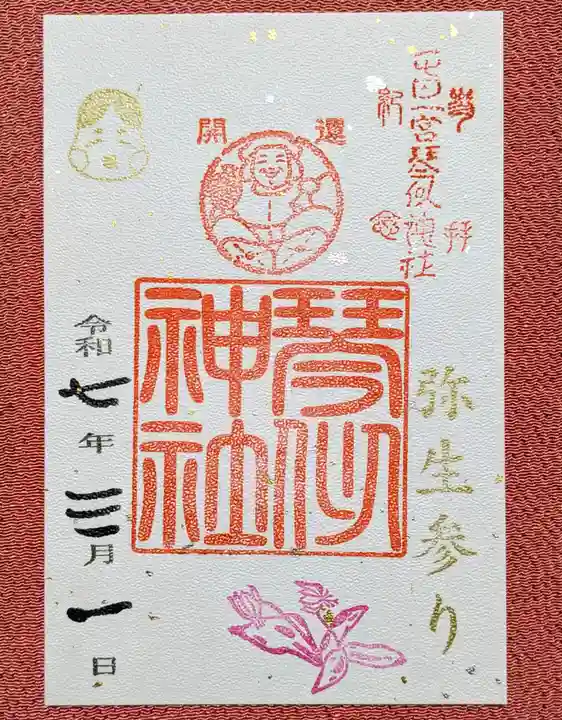 参拝
正一位琴似神社
紀念
開運
琴似神社
弥生参り
令和七年三月一日